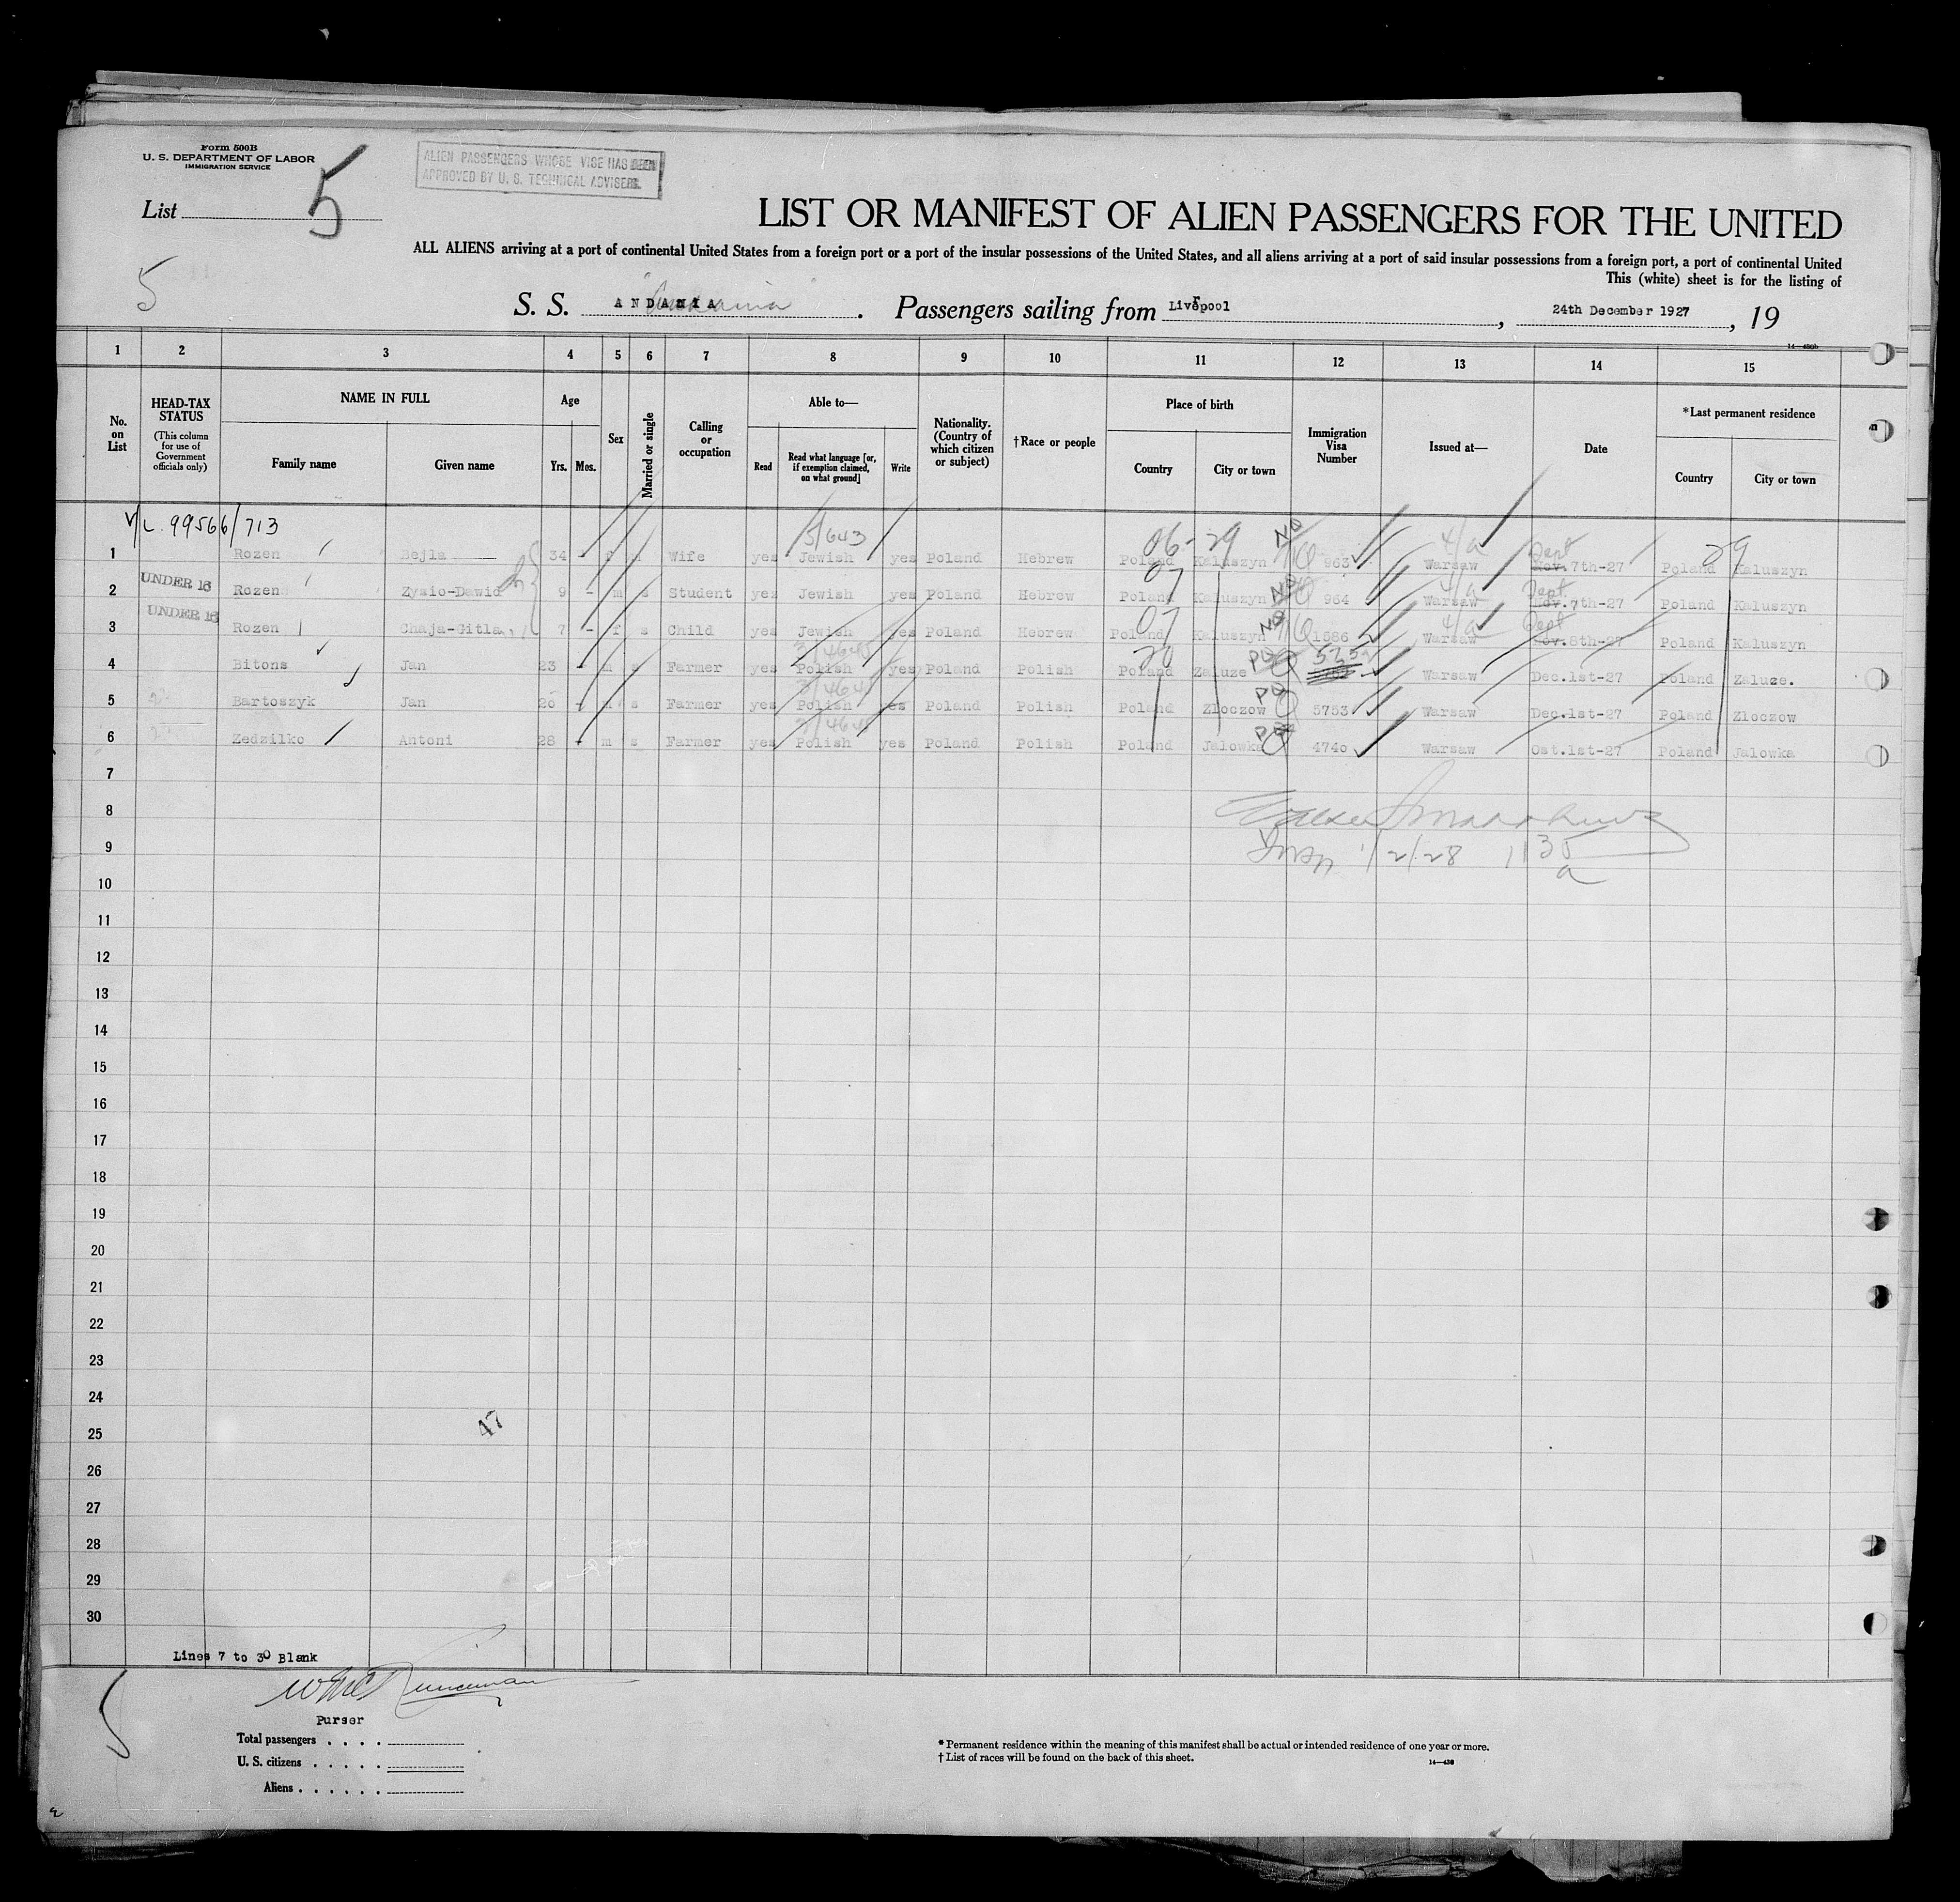 Form 500B
U. S. DEPARTMENT OF LABOR
IMMIGRATION SERVICE
ALIEN PASSENGERS WHOSE VISE HAS BEEN
APPROVED BY U. S. TECHNICAL ADVISERS.
List 5
LIST OR MANIFEST OF ALIEN PASSENGERS FOR THE UNITED
ALL ALIENS arriving at a port of continental United States from a foreign port or a port of the insular possessions of the United States, and all aliens arriving at a port of said insular possessions from a foreign port, a port of continental United
This (white) sheet is for the listing of
5
S. S. ANDANIA . Passengers sailing from Liverpool , 24th December 1927 , 19
14—430b
1 2 3 4 5 6 7 8 9 10 11 12 13 14 15
No. on List
HEAD-TAX STATUS (This column for use of Government officials only)
NAME IN FULL
Family name
Given name
Age
Yrs.
Mos.
Sex
Married or single
Calling or occupation
Able to—
Read
Read what language [or, if exemption claimed, on what ground]
Write
Nationality. (Country of which citizen or subject)
†Race or people
Place of birth
Country
City or town
Immigration Visa Number
Issued at—
Date
*Last permanent residence
Country
City or town
V/L 99566/713 5/643 06-29 NQ 4/a Sept 29
1 Rozen Bejla 34 - f m Wife yes Jewish yes Poland Hebrew Poland Kaluszyn 963 Warsaw Nov. 7th-27 Poland Kaluszyn
07 NQ 4/a Sept
2 UNDER 16 Rozen Zysio-Dawid 9 - m s Student yes Jewish yes Poland Hebrew Poland Kaluszyn 964 Warsaw Nov. 7th-27 Poland Kaluszyn
07 NQ 4/a Sept
3 UNDER 16 Rozen Chaja-Gitla 7 - f s Child yes Jewish yes Poland Hebrew Poland Kaluszyn 1586 Warsaw Nov. 8th-27 Poland Kaluszyn
4 Bitons Jan 23 - m s Farmer yes Polish yes Poland Polish Poland Zaluze Warsaw Dec.1st-27 Poland Zaluze.
5 Bartoszyk Jan 26 - m s Farmer yes Polish yes Poland Polish Poland Zloczow 5753 Warsaw Dec.1st-27 Poland Zloczow
6 Zedzilko Antoni 28 - m s Farmer yes Polish yes Poland Polish Poland Jalowka 4740 Warsaw Ost.1st-27 Poland Jalowka
7
8
9 Insp 1/2/28 1135
10 a
11
12
13
14
15
16
17
18
19
20
21
22
23
24
47
25
26
27
28
29
30
Lines 7 to 30 Blank
Purser
Total passengers . . . .
U. S. citizens . . . . .
Aliens . . . . . .
* Permanent residence within the meaning of this manifest shall be actual or intended residence of one year or more.
† List of races will be found on the back of this sheet.
14—430